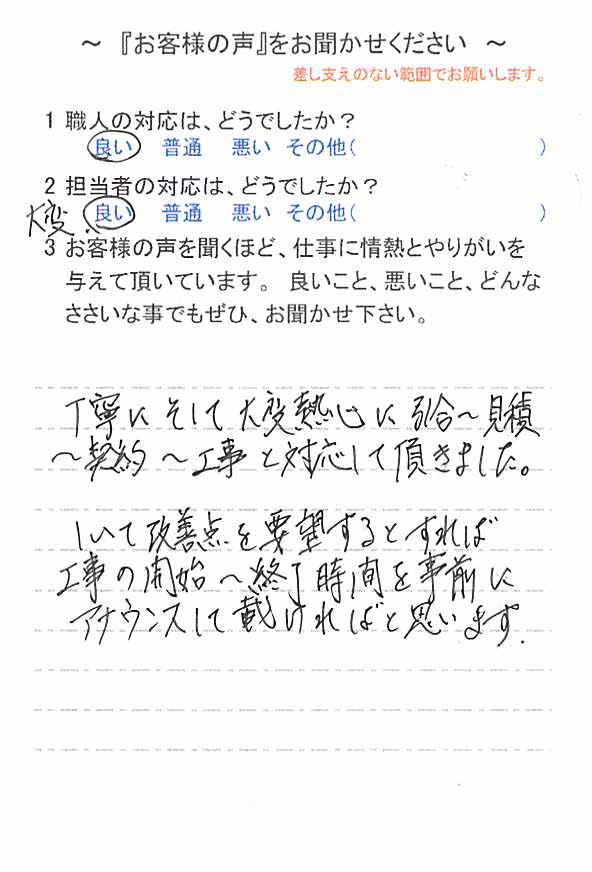 ～ 『お客様の声』をお聞かせください ～
差し支えのない範囲でお願いします。
1 職人の対応は、どうでしたか？
良い 普通 悪い その他( )
2 担当者の対応は、どうでしたか？
大変 良い 普通 悪い その他( )
3 お客様の声を聞くほど、仕事に情熱とやりがいを
与えて頂いています。 良いこと、悪いこと、どんな
ささいな事でもぜひ、お聞かせ下さい。
丁寧に そして 大変熱心に 引合～見積
～契約 ～工事 と対応して頂きました。
しいて改善点を要望するとすれば
工事の開始～終了時間を事前に
アナウンスして戴ければと思います.